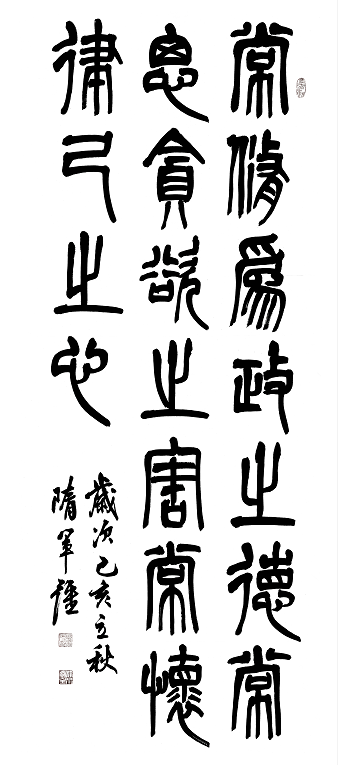 常修為政之德常
思貪欲之害常懷
律己之心
歲次乙亥立秋
隋軍